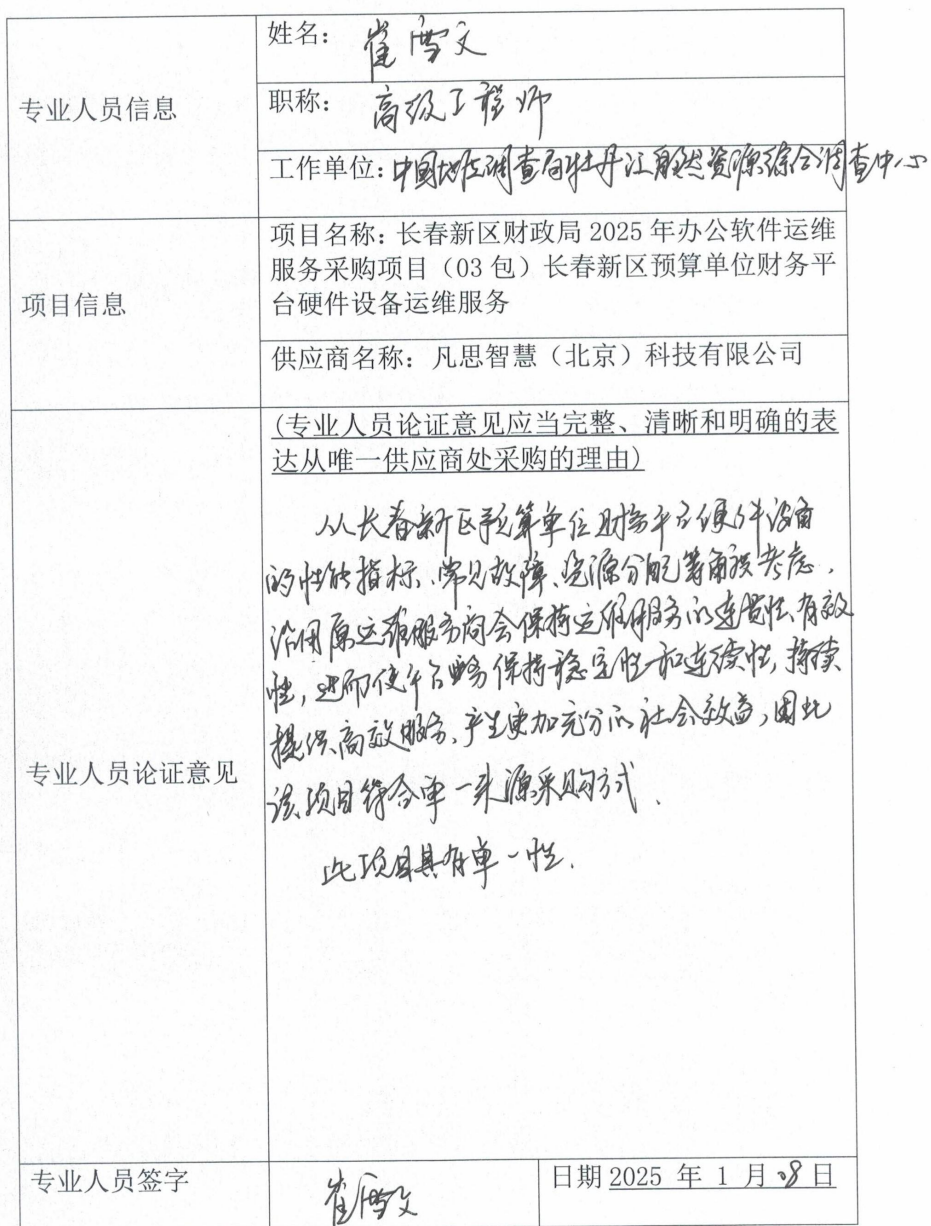 专业人员信息
姓名：崔雪文
职称：高级工程师
工作单位：中国地质调查局牡丹江自然资源综合调查中心
项目信息
项目名称：长春新区财政局 2025 年办公软件运维
服务采购项目（03 包）长春新区预算单位财务平
台硬件设备运维服务
供应商名称：凡思智慧（北京）科技有限公司
专业人员论证意见
(专业人员论证意见应当完整、清晰和明确的表
达从唯一供应商处采购的理由)
从长春新区预算单位财务平台硬件设备
的性能指标、常见故障、资源分配等角度考虑，
沿用原运维服务商会保持运维服务的连贯性、有效
性，进而使平台业务保持稳定性和连续性，持续
提供高效服务，产生更加充分的社会效益，因此
该项目符合单一来源采购方式．
此项目具有单一性．
专业人员签字
崔雪文
日期 2025 年 1 月 08 日